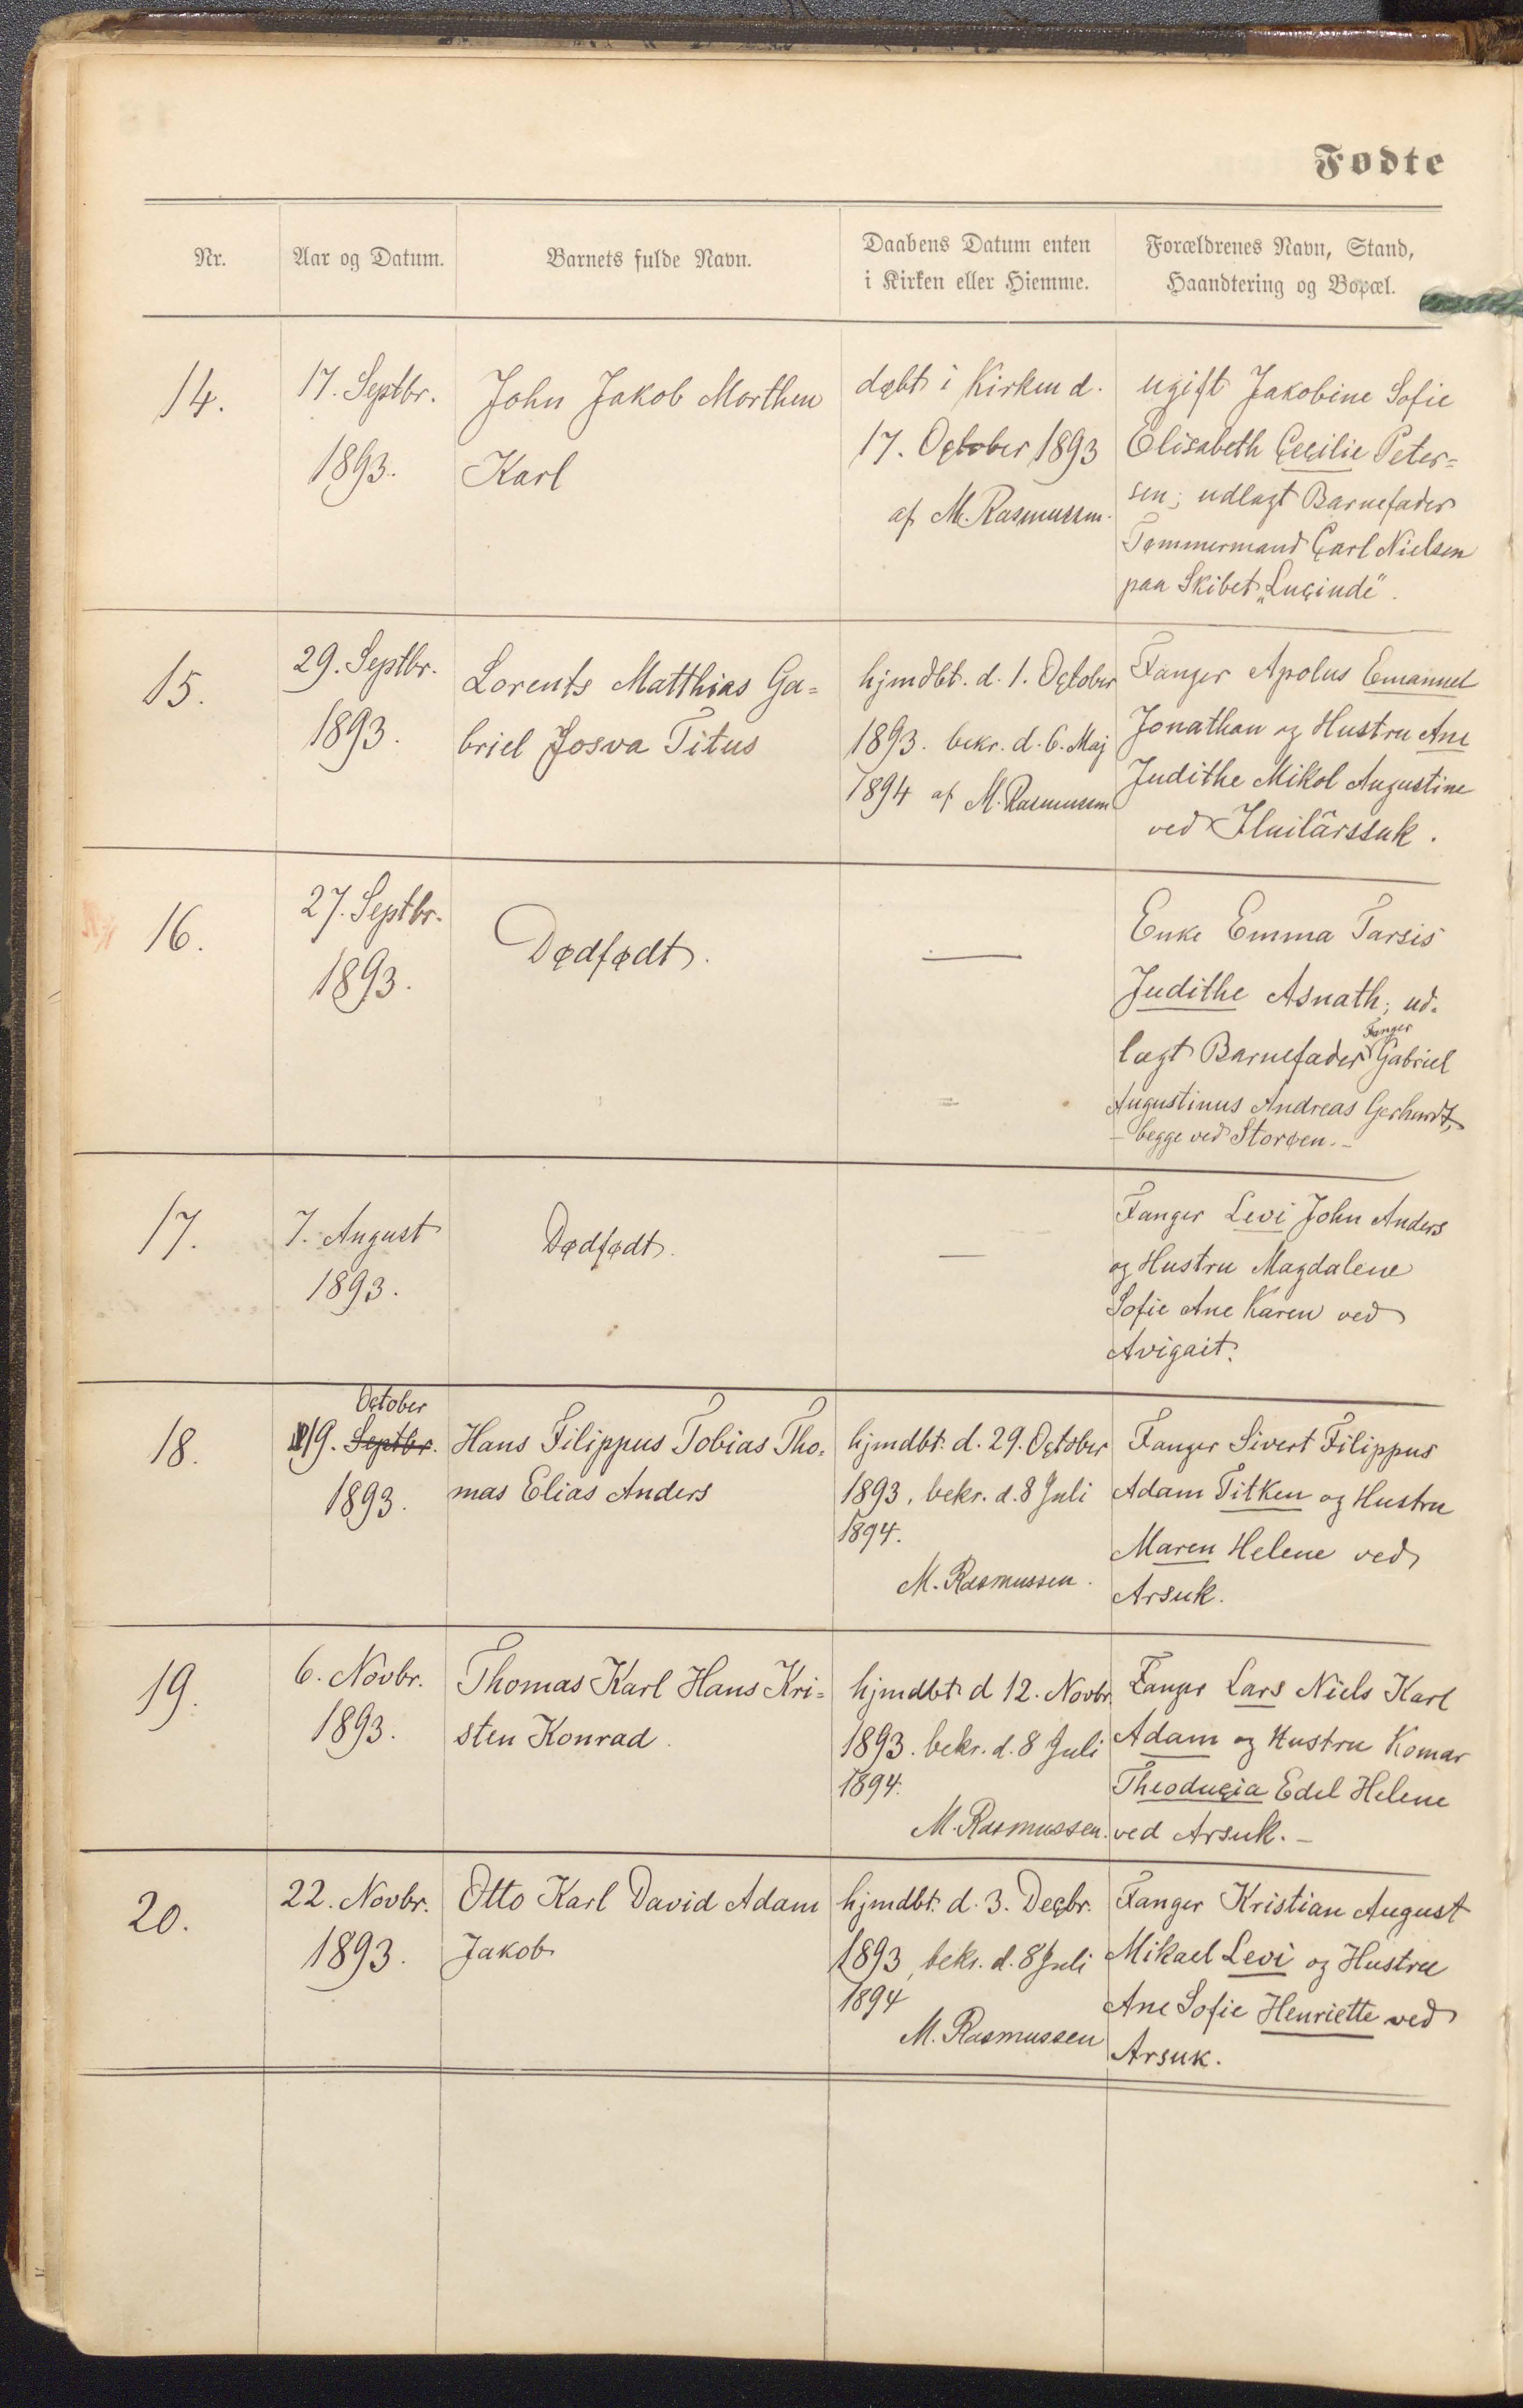 Fødte
Nr.
Aar og Datum.
Barnets fulde Navn.
Daabens Datum enten
i Kirken eller Hiemme.
Forældrenes Navn, Stand,
Haandtering og Bopæl.
14.
17. Septbr.
1893.
John Jakob Morthen
Karl
døbt i Kirken d.
17. October 1893
af M. Rasmussen.
ugift Jakobine Sofie
Elisabeth Cecilie Peter=
sen; udlagt Barnefader
Tømmermand Carl Nielsen
paa Skibet „Lucinde".
15.
29. Septbr.
1893.
Lorents Matthias Ga=
briel Josva Titus
hjmdbt. d. 1. October
1893. bekr. d. 6. Maj
1894 af M. Rasmussen
Fanger Apolus Emanuel
Jonathan og Hustru Ane
Judithe Mikol Augustine
ved Iluilârssuk.
16.
27. Septbr.
1893.
Dødfødt.
—
Enke Emma Tarsis
Judithe Asnath; ud=
lagt Barnefader Fanger Gabriel
Augustinus Andreas Gerhardt,
– begge ved Storøen. –
17.
7. August
1893.
Dødfødt.
—
Fanger Levi John Anders
og Hustru Magdalene
Sofie Ane Karen ved
Avigait.
18.
October
19. Septbr.
1893.
Hans Filippus Tobias Tho=
mas Elias Anders
hjmdbt. d. 29. October
1893, bekr. d. 8 Juli
1894.
M. Rasmussen.
Fanger Sivert Filippus
Adam Titken og Hustru
Maren Helene ved
Arsuk.
19.
6. Novbr.
1893.
Thomas Karl Hans Kri=
sten Konrad.
hjmdbt d 12. Novbr.
1893. bekr. d. 8 Juli
1894.
M. Rasmussen.
Fanger Lars Niels Karl
Adam og Hustru Komar
Theoducia Edel Helene
ved Arsuk. –
20.
22. Novbr.
1893.
Otto Karl David Adam
Jakob
hjmdbt. d. 3. Decbr.
1893, bekr. d. 8 Juli
1894
M. Rasmussen
Fanger Kristian August
Mikael Levi og Hustru
Ane Sofie Henriette ved
Arsuk.